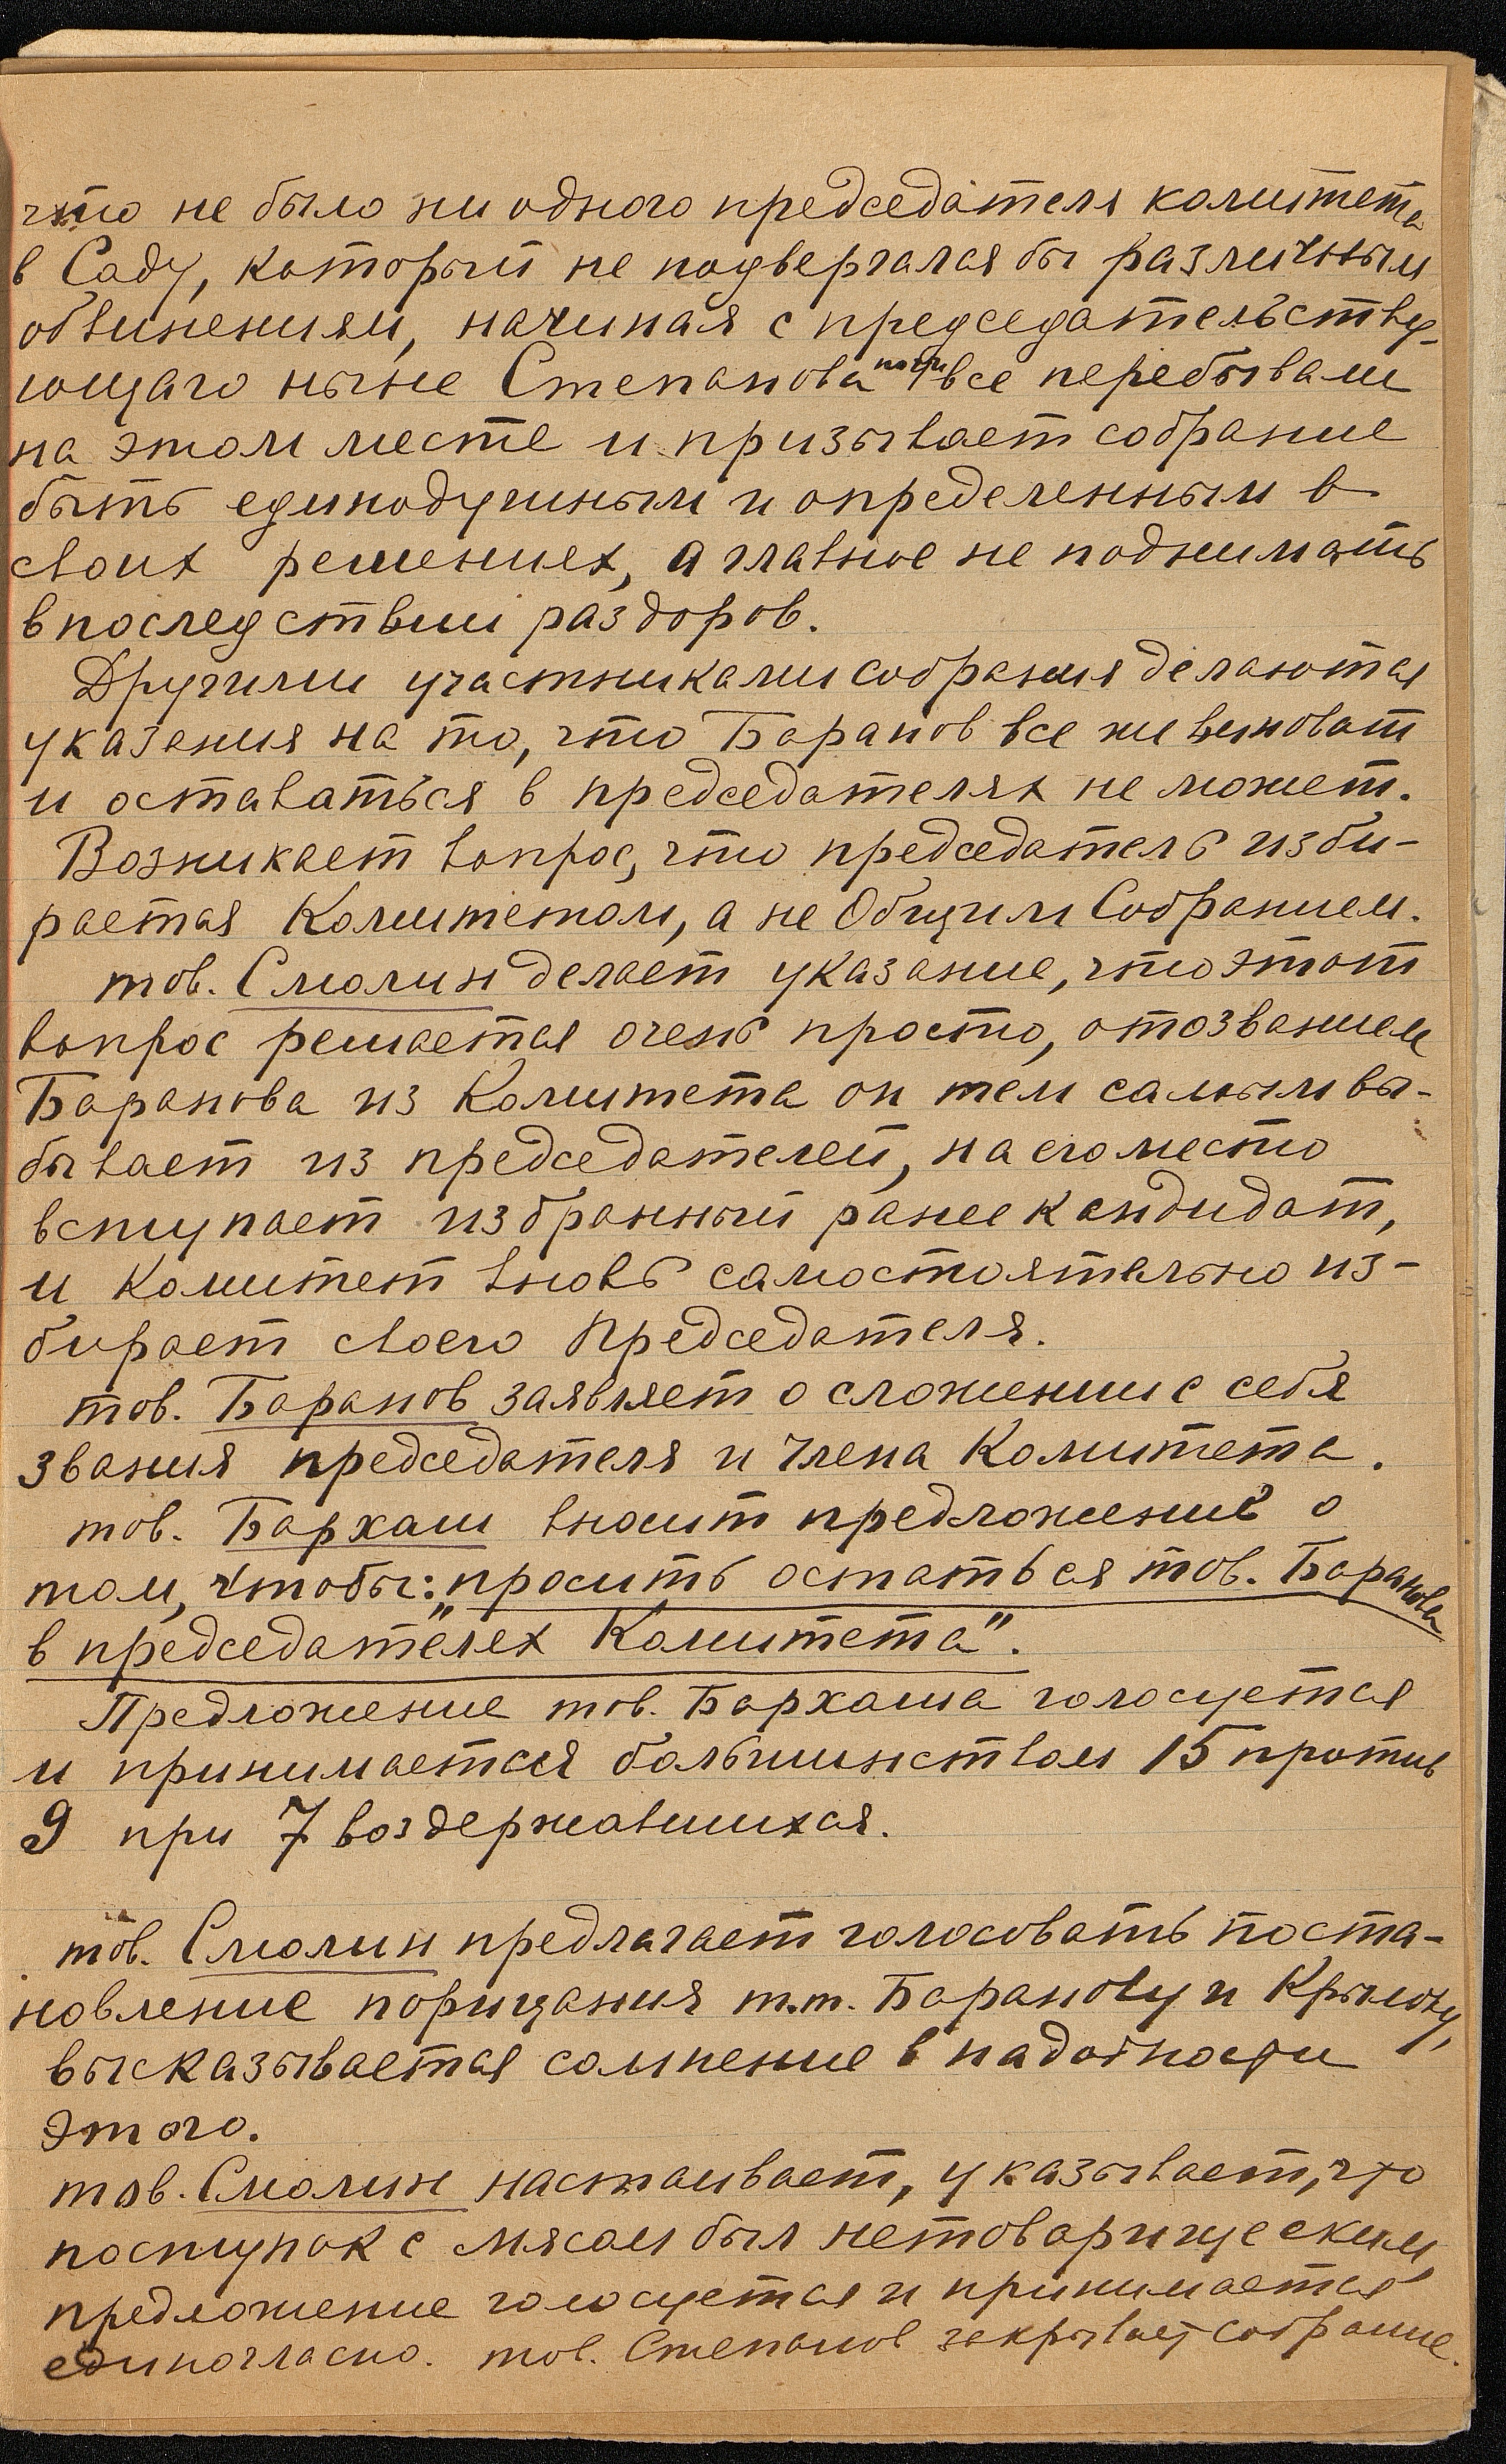 что не было ни одного председателя комитета
в Саду, который не подвергался бы различным
обвинениям, начиная с председательству-
ющаго ныне Степанова почти все перебывали
на этом месте и призывает собрание
быть единодушным и определенным в
своих решениех, а главное не поднимать
впоследствии раздоров.
Другими участниками собрания делаются
указания на то, что Баранов все же виноват
и оставаться в председателях не может.
Возникает вопрос, что председатель изби-
рается Комитетом, а не Общим Собранием.
тов. Смолин делает указание, что этот
вопрос решается очень просто, отозванием
Баранова из Комитета он тем самым вы-
бывает из председателей, на его место
вступает избранный ранее кандидат,
и Комитет вновь самостоятельно из-
бирает своего Председателя.
тов. Баранов заявляет о сложении с себя
звания председателя и члена Комитета.
тов. Бархаш вносит предложение о
том, чтобы: „просить остаться тов. Баранова
в председателех Комитета".
Предложение тов. Бархаша голосуется
и принимается большинством 15 против
9 при 7 воздержавшихся.
тов. Смолин предлагает голосовать поста-
новление порицания т.т. Баранову и Крылову,
высказывается сомнение в надобности
этого.
тов. Смолин настаивает, указывает, что
поступок с мясом был нетоварищеским,
предложение голосуется и принимается
единогласно. тов. Степанов закрывает собрание.